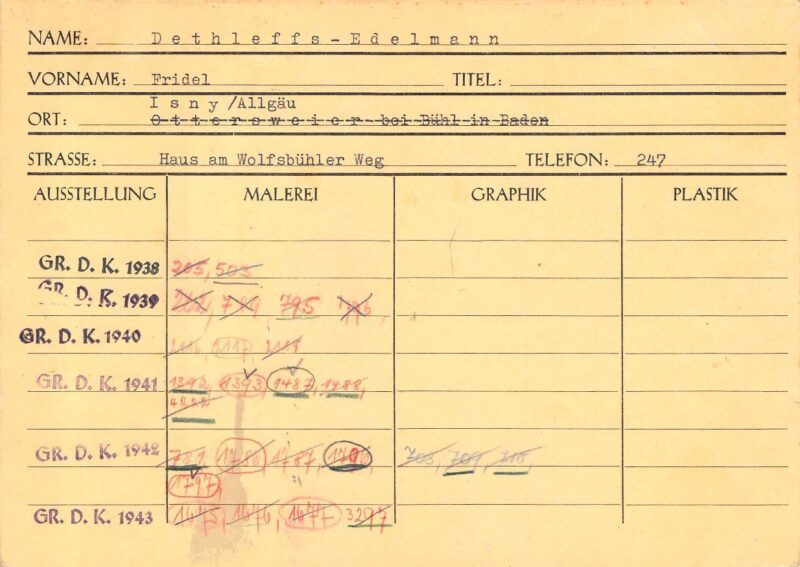 NAME: Dethleffs-Edelmann
VORNAME: Fridel TITEL:
Isny/Allgäu
ORT: Ottersweier bei Bühl in Baden
STRASSE: Haus am Wolfsbühler Weg TELEFON: 247
AUSSTELLUNG MALEREI GRAPHIK PLASTIK
GR. D. K. 1938 205, 503
GR. D. K. 1939 795
GR. D. K. 1940 2116, 2117, 2118
GR. D. K. 1941 1392, 1393, 1487, 1488,
GR. D. K. 1942 1786, 1787, 1790, 708, 709, 710,
1797,
GR. D. K. 1943 1675, 1676, 1677, 3297